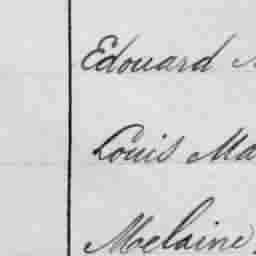 Edouard
Louis Ma
Melaine